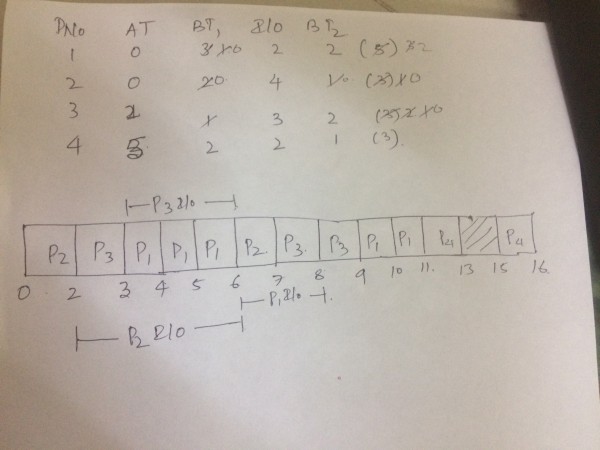 PNo AT BT1 I/O BT2
1 0 2 2 (5) 2
2 0 4 (3)
3 3 2
4 5 2 2 1 (3)
P3 I/O
P2 P3 P1 P1 P1 P2 P3 P3 P1 P1 P4 P4
0 2 3 4 5 6 7 8 9 10 11 13 15 16
P1 I/O
P2 I/O